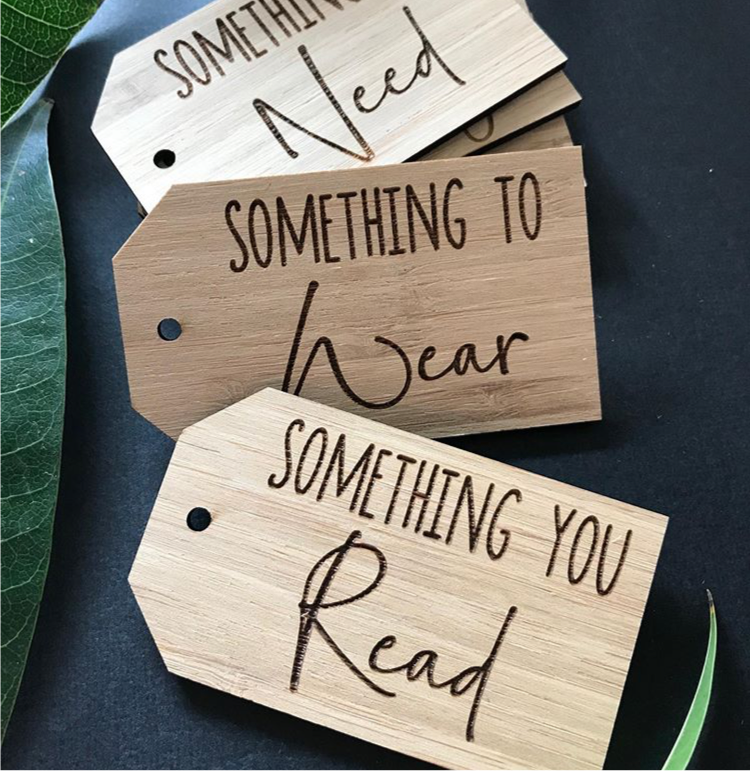 SOMETHING
Need
SOMETHING TO
Wear
SOMETHING YOU
Read